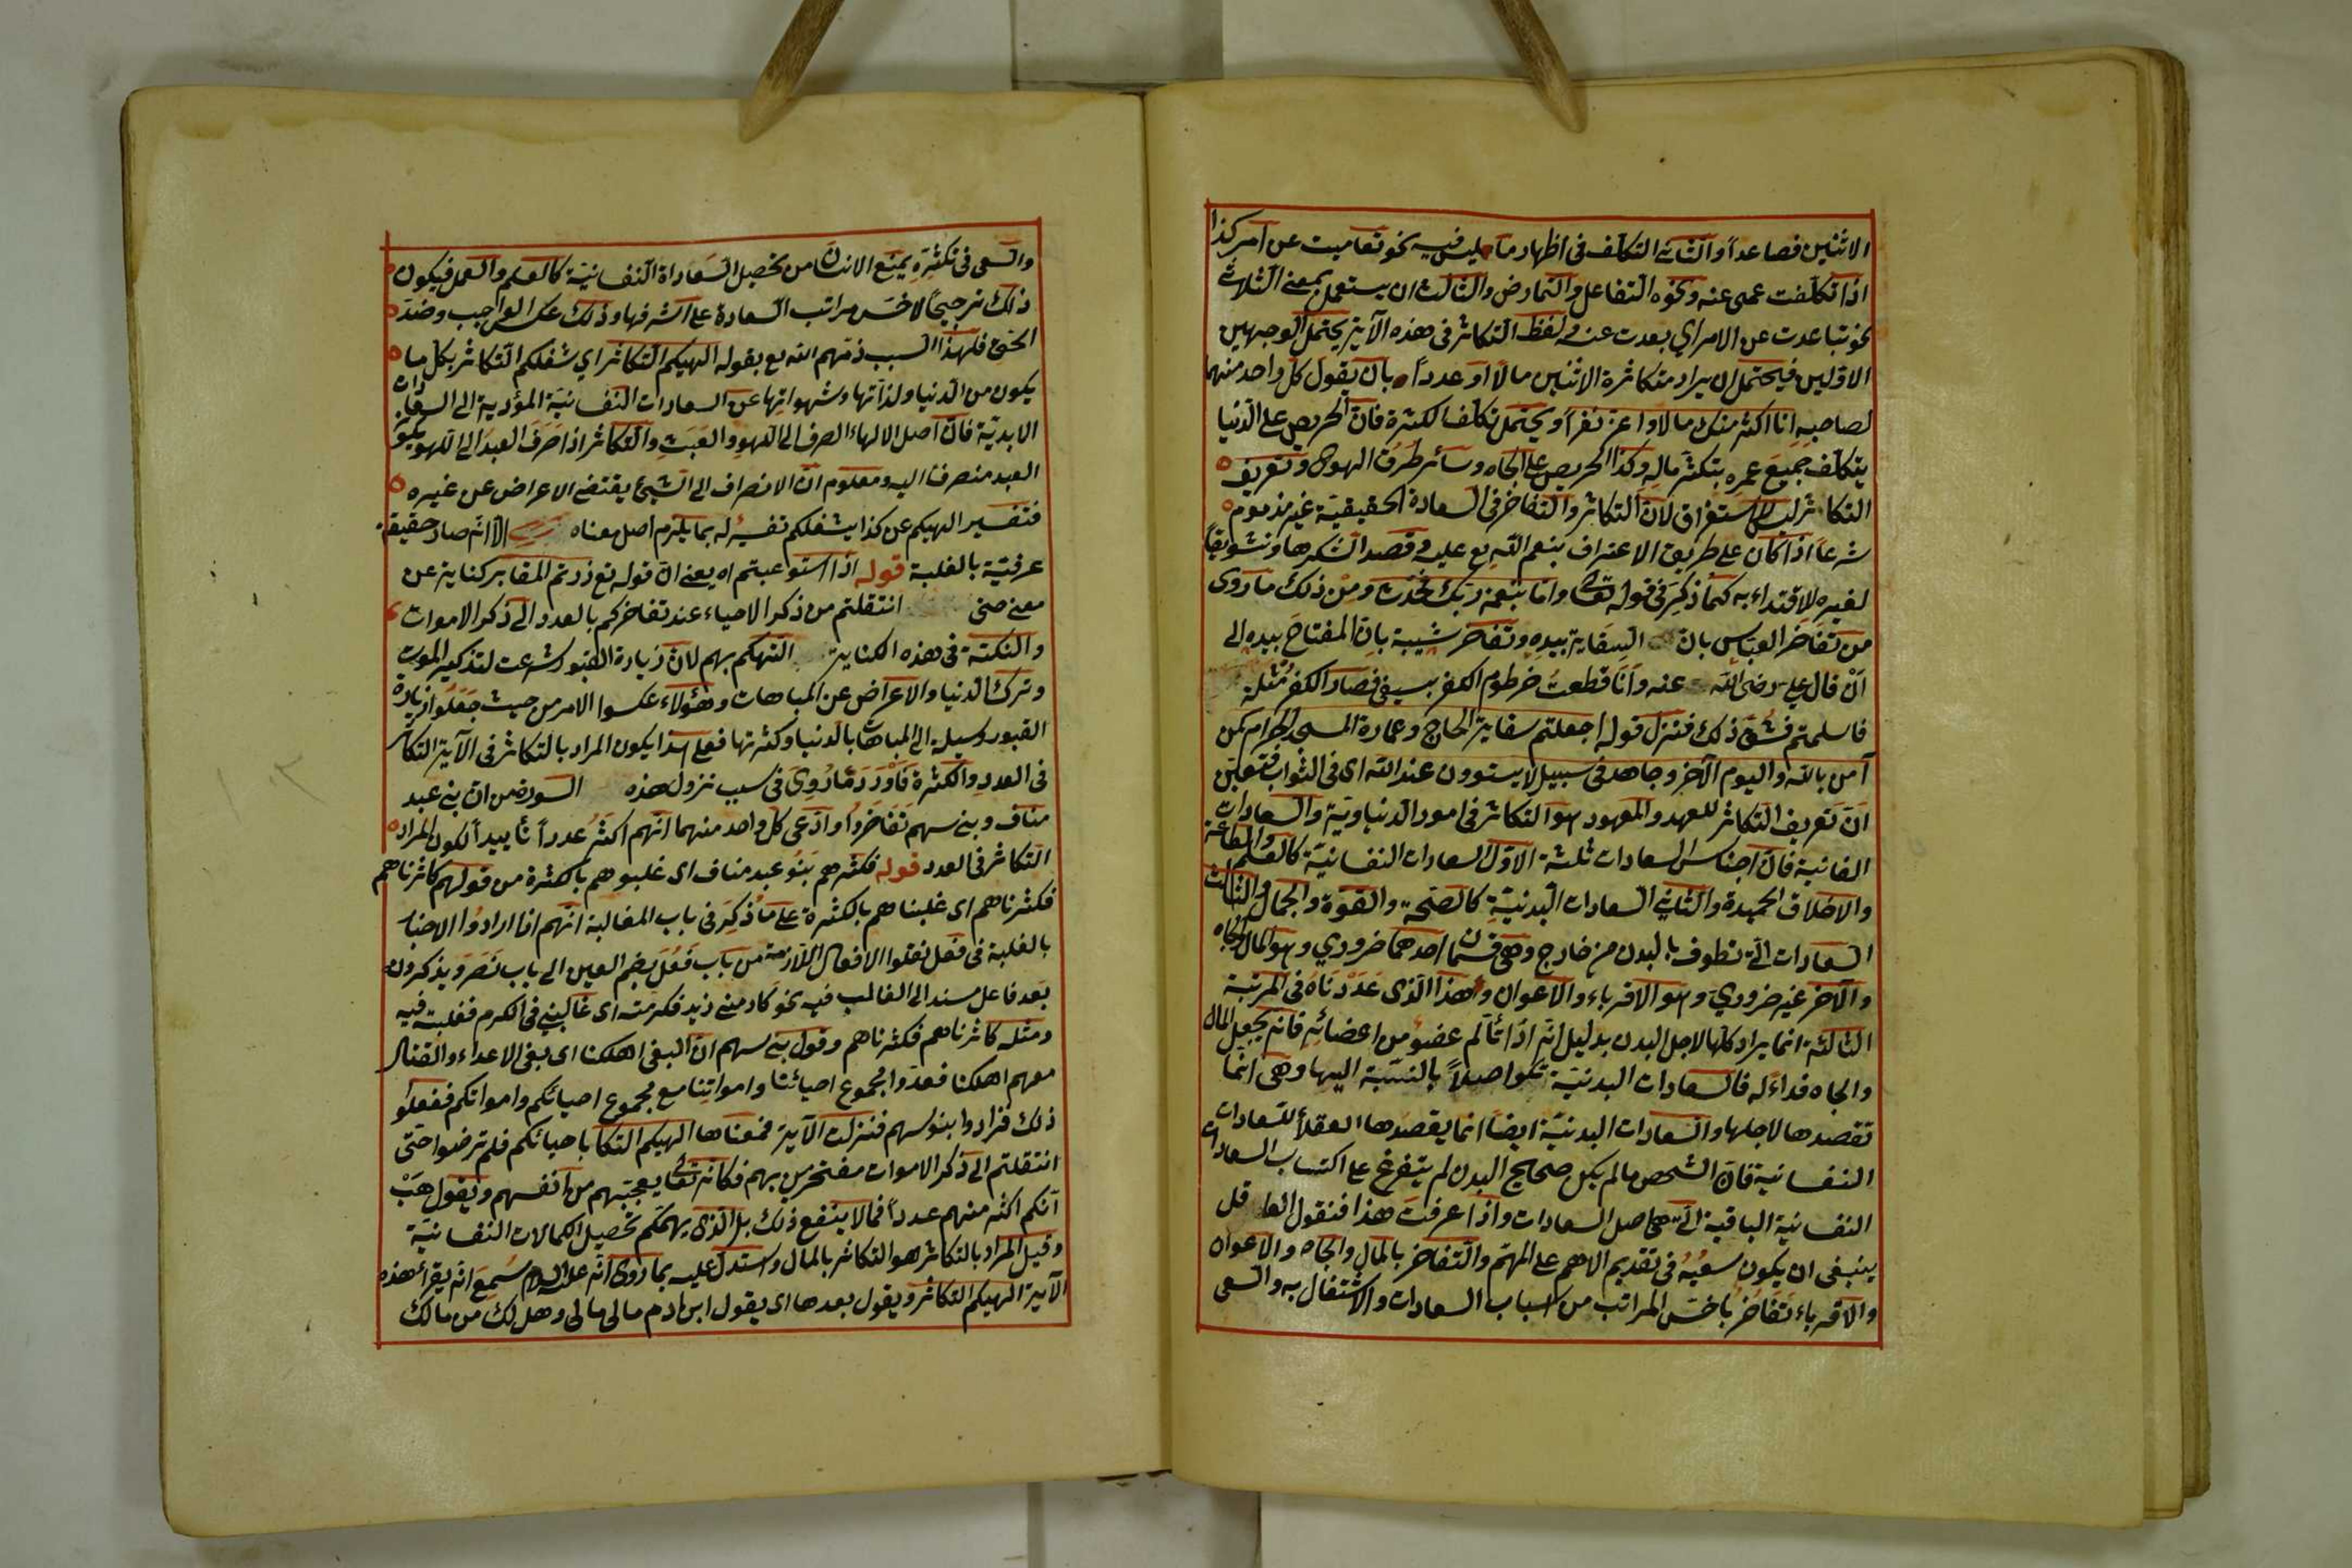 الاثنين فصاعدا والثانى التكلف فى اظهار ما ليس فيه نحو تعاميت عن امر كذا
اذا تكلفت عمى عنه ونحوه التغافل والتمارض والثالث ان يستعمل بمعنى الثلاثى
نحو تباعدت عن الامر اي بعدت عنه ولفظ التكاثر فى هذه الآية يحتمل الوجهين
الاولين فيحتمل ان يراد متكاثرة الاثنين مالا او عددا بان يقول كل واحد منهما
لصاحبه انا اكثر منك مالا واعز نفرا ويحتمل تكلف الكثرة فان الحريص على الدنيا
يتكلف جميع عمره بتكثر ماله وكذا الحريص على الجاه وسائر طرق الهوى وتعريف
التكاثر ليس للاستغراق لان التكاثر والتفاخر فى السعادة الحقيقية غير مذموم
شرعا اذا كان على طريق الاعتراف بنعم الله تع عليه وقصد الشكرها وتشويقا
لغيره للاقتداء به كما ذكر فى قوله تعالى واما بنعمة ربك فحدث ومن ذلك ما روى
من تفاخر العباس بان السقاية بيده وتفاخر شيبة بان المفتاح بيده الى
ان قال علي رضى الله عنه وانا قطعت خرطوم الكفر بسيفى فصار الكفر مثلة
فاسلمتم فشق ذلك فنزل قوله اجعلتم سقاية الحاج وعمارة المسجد الحرام كمن
آمن بالله واليوم الآخر وجاهد فى سبيل لا يستوون عند الله اى فى الثواب فتعين
ان تعريف التكاثر للعهد والمعهود هو التكاثر فى امور الدنياوية والسعادات
الفانية فان اجناس السعادات ثلثة الاول السعادات النفسانية كالعلم والطاعة
والاخلاق الحميدة والثاني السعادات البدنية كالصحة والقوة والجمال والثالث
السعادات التى تطوف بالبدن من خارج وهى قسمان احدهما ضروري وهو المال والجاه
والآخر غير ضروري وهو الاقرباء والاعوان وهذا الذى عددناه فى المرتبة
الثالثة انما يراد كلها لاجل البدن بدليل انه اذا تألم عضو من اعضائه فانه يجعل المال
والجاه فداء له فالسعادات البدنية تكو اصلا بالنسبة اليها وهى انما
تقصد ها لاجلها والسعادات البدنية ايضا انما يقصدها العقلاء للسعادات
النفسانية فان الشخص ما لم يكن صحيح البدن لم يتفرغ على اكتساب السعادات
النفسانية الباقية التى هى اصل السعادات واذا عرفت هذا فنقول العاقل
ينبغى ان يكون سعيه فى تقديم الاهم على المهم والتفاخر بالمال والجاه والاعوان
والاقرباء تفاخر باخس المراتب من اسباب السعادات والاشتغال به والسعى
والسعى فى تكثره يمنع الانسان من تحصيل السعادات النفسانية كالعلم والعمل فيكون
ذلك ترجيحا لاخس مراتب السعادة على اشرفها وذلك عكس الواجب وضد
الحق فلهذا السبب ذمهم الله تع بقوله الهيكم التكاثر اي شغلكم التكاثر بكل ما
يكون من الدنيا ولذاتها وشهواتها عن السعادات النفسانية المؤدية الى السعادات
الابدية فان اصل الالهاء الصرف الى اللهو والعبث والتكاثر اذا صرف العبد الى اللهو يكو
العبد منصرفا اليه ومعلوم ان الانصراف الى الشيئ يقتضى الاعراض عن غيره
فتفسير الهيكم عن كذا يشغلكم تفسير له بما يلزم اصل معناه الا انه صار حقيقة
عرفية بالغلبة قوله اذا استوعبتم اه يعنى ان قوله تع زرتم المقابر كناية عن
معنى انتقلتم من ذكر الاحياء عند تفاخركم بالعدد الى ذكر الاموات
والنكتة فى هذه الكناية التهكم بهم لان زيارة القبور شرعت لتذكير الموت
وترك الدنيا والاعراض عن المباهات وهؤلاء عكسوا الامر من حيث جعلوا زيارة
القبور وسيلة الى المباهات بالدنيا وكثرتها فعلى هذا يكون المراد بالتكاثر فى الآية التكاثر
فى العدد والكثرة فاورد ما روى فى سبب نزول هذه السورة من ان بنى عبد
مناف وبنى سهم تفاخروا وادعى كل واحد منهما انهم اكثر عددا تأييدا لكون المراد
التكاثر فى العدد قوله فكثرهم بنو عبد مناف اى غلبوهم بالكثرة من قولهم كاثرناهم
فكثرناهم اى غلبناهم بالكثرة على ما ذكر فى باب المغالبة انهم اذا ارادوا الاخبار
بالغلبة فى فعل نقلوا الافعال اللازمة من باب فعل بضم العين الى باب نصر ويذكرون
بعد فاعل مسند الى الغالب فيه نحو كارمنى زيد فكرمته اى غالبنى فى الكرم فغلبته فيه
ومثله كاثرناهم فكثرناهم وقول بنى سهم ان البغى اهلكنا اى بغى الاعداء والقتال
معهم اهلكنا فعدوا مجموع احيائنا وامواتنا مع مجموع احيائكم وامواتكم ففعلوا
ذلك فزادوا بنو سهم فنزلت الآية فمعناها الهيكم التكا باحيائكم فلم ترضوا حتى
انتقلتم الى ذكر الاموات مفتخرين بهم فكانه تعالى يعجبهم من انفسهم ويقول هب
انكم اكثر منهم عددا فما لا ينفع ذلك بل الذى يهمكم تحصيل الكمالات النفسانية
وقيل المراد بالتكاثر هو التكاثر بالمال واستدل عليه بما روى انه عليه السلام سمع انه يقرأ هذه
الآية الهيكم التكاثر ويقول بعدها اى يقول ابن ادم مالى مالى وهل لك من مالك